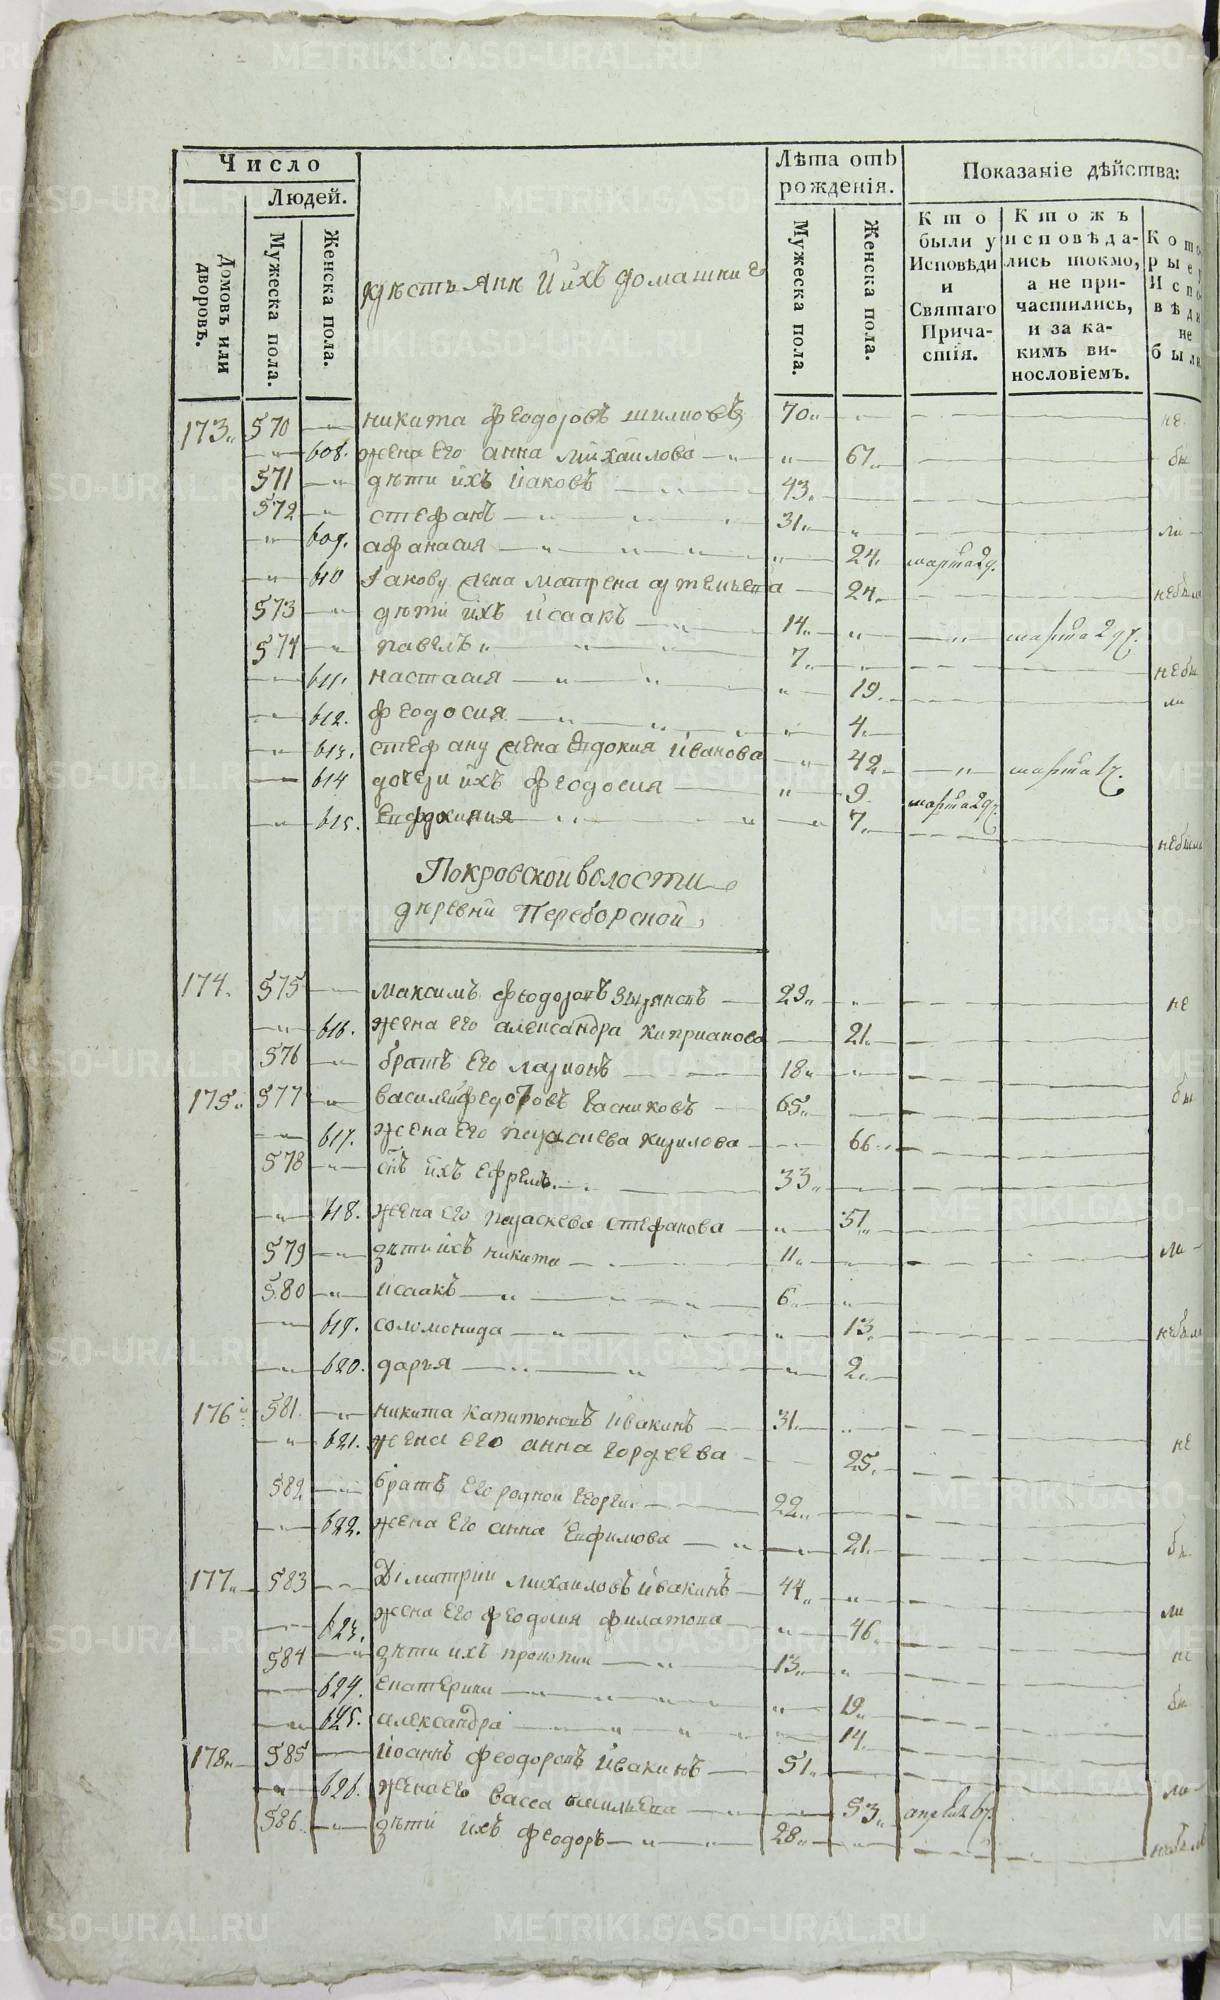 Число
Людей.
Домовъ или дворовъ.
Мужеска пола.
Женска пола.
крѣстьянѣ и ихъ домашние
Лѣта отъ рожденія.
Мужеска пола.
Женска пола.
Показаніе дѣйства:
Кто были у Исповѣди и Святаго Причастія.
Ктожъ исповѣдались токмо, а не причастились, и за какимъ винословіемъ.
Которые Исповѣди не были
173 570 никита феодоровъ шилновъ 70 не
608. жена его анна михаилова 67 бы
571 дѣти ихъ иаковъ 43
572 стефанъ 31 ли
609. афанасия 24 марта 29.
610 Iакову жена матрена артемьева 24 небыли
573 дѣти ихъ исаакъ 14 марта 29 ч.
574 павелъ 7 небы
611. настасия 19 ли
612. феодосия 4
613. стефану жена Евдокия иванова 42 марта 1 ч.
614 дочери ихъ феодосия 9 марта 29 ч.
615. 7 небыли
Покровской волости
дѣревни Переборской
174. 575 максимъ феодоровъ 29 не
616. жена его александра киприанова 21
576 братъ его ларионъ 18
175 577 василий федотовъ 65 бы
617. жена его параскева кирилова 66
578 снъ ихъ ефремъ 33
618. жена его параскева стефанова 51
579 дѣти ихъ никита 11 ли
580 исаакъ 6
619. соломонида 13 небыли
620. дарья 2
176 581. никита капитоновъ ивакинъ 31 не
621. жена его анна гордеева 25
582 братъ его родной георгий 22
622. жена его анна Евфимова 21 бы
177 583 Димитрии михаиловъ ивакинъ 44 ли
623. жена его феодосия филатова 46
584 дѣти ихъ прокопии 13 не
624. екатерина 19 бы
625. александра 14
178 585 иоаннъ феодоровъ ивакинъ 51 ли
626. жена его васса васильева 53 апреля 6 ч.
586. дѣти ихъ феодоръ 28 небыли
METRIKI.GASO-URAL.RU